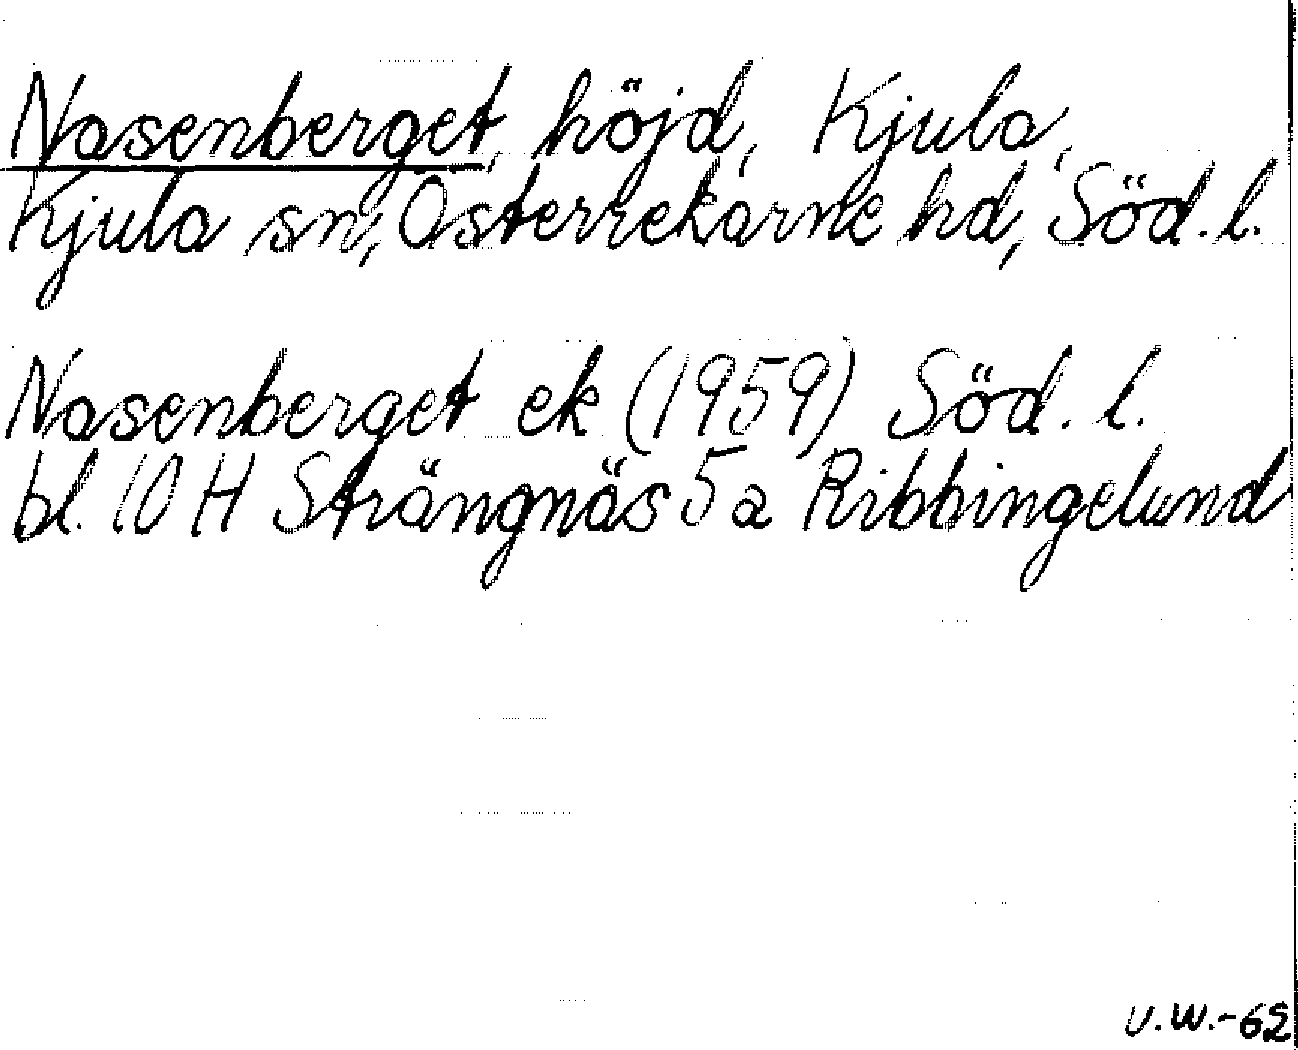 Nasenberget, höjd, Kjula,
Kjula sn, Österrekarne hd, Söd. l.
Nasenberget ek (1959) Söd. l.
bl. 10 H Strängnäs 5 a Ribbingelund
U.W.-62